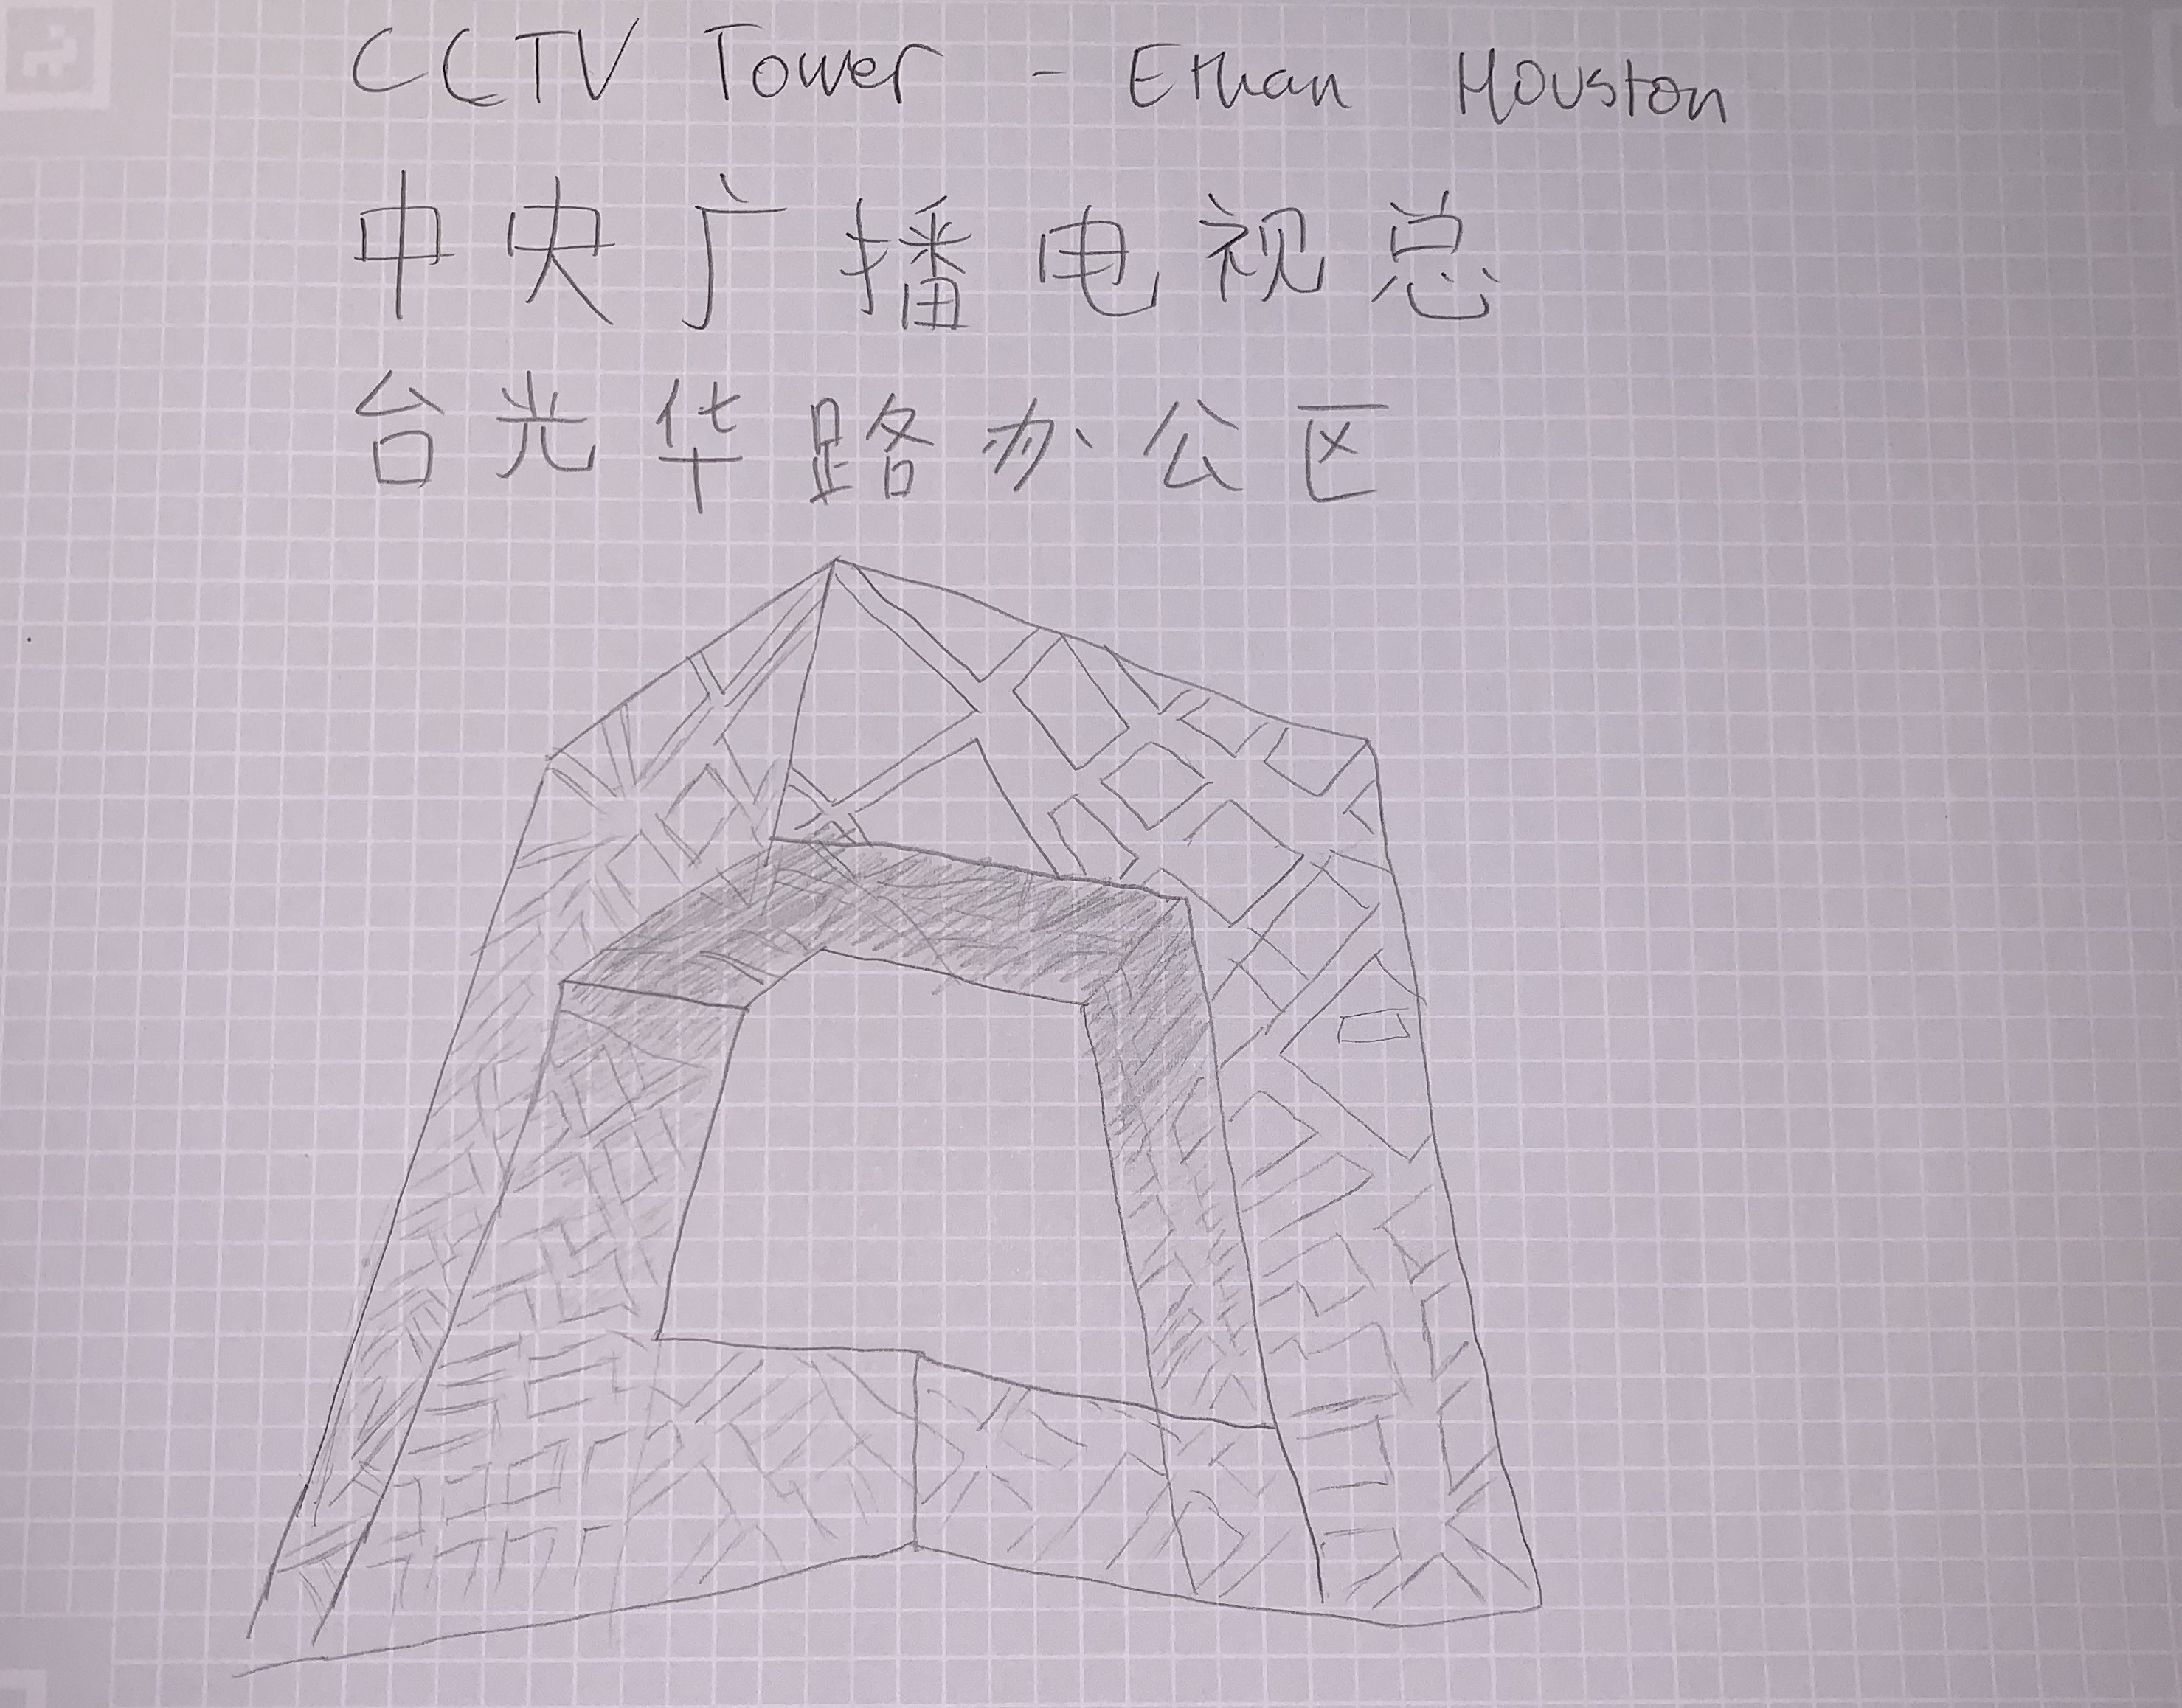 CCTV Tower - Ethan Houston
中央广播电视总
台光华路办公区